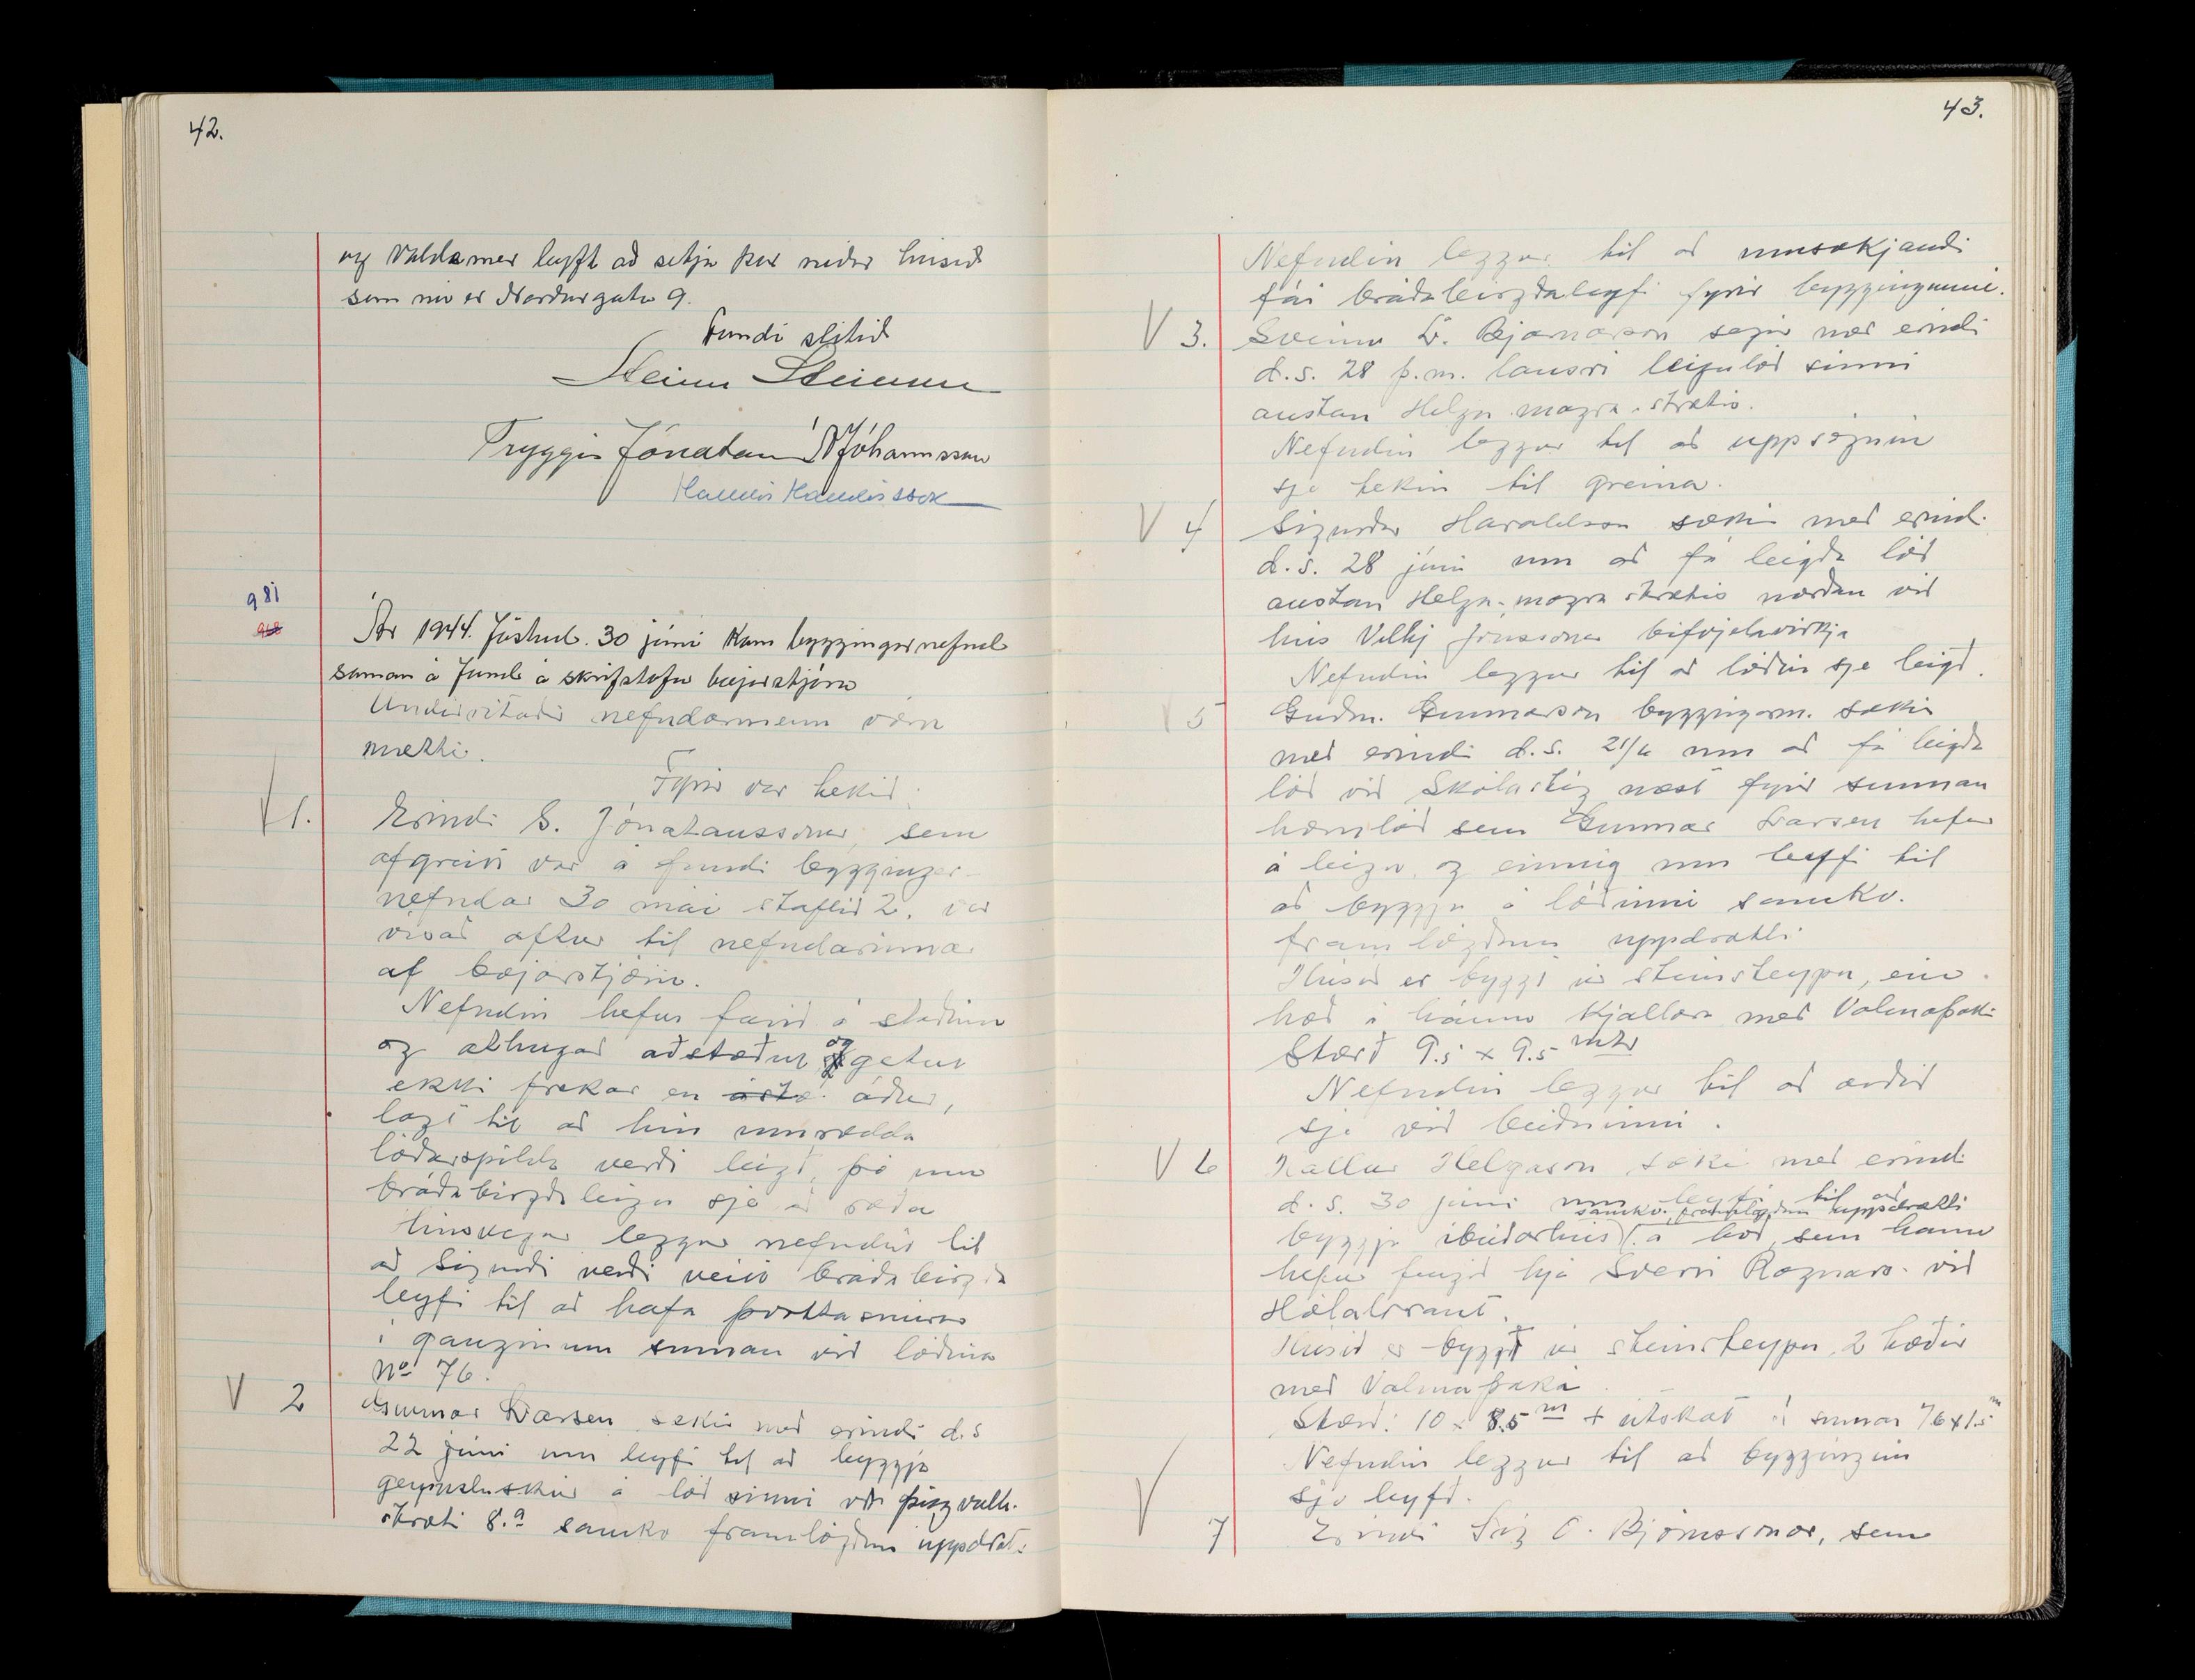 42.
og Valdemar leyft að setja þar niður húsið
sem nú er Norðurgata 9.
Fundi slitið
Steinn Steinsen
Tryggvi Jónatan Jóhannsson
Halldór Halldórsson
981
Ár 1944. Föstud. 30 júní kom byggingarnefnd
saman á fund á skrifstofu bæjarstjóra
Undirritaðir nefndarmenn voru
mættir.
Fyrir var tekið:
V 1.
Erindi S. Jónatanssonar, sem
afgreitt var á fundi bygginga-
nefndar 30 mai staflið 2. var
vísað aftur til nefndarinnar
af bæjarstjórn.
Nefndin hefur farið á staðinn
og athugað aðstæður og getur
ekki frekar en áður,
lagt til að hin umrædda
lóðarspilda verði leigð, þó um
bráðabirgðaleigu sje að ræða
Hinsvegar leggur nefndin til
að Sigurði verði veitt bráðabirgða
leyfi til að hafa þvottasnúrur
í ganginum sunnan við lóðina
No 76.
V 2
Gunnar Larsen sækir með erindi d.s
22 júní um leyfi til að byggja
geymsluskúr á lóð sinni við Þingvalla-
stræti 8.a samkv framlögðum uppdrætti
43.
Nefndin leggur til að umsækjandi
fái bráðabirgðaleyfi fyrir byggingunni.
V 3.
Sveinn Bjarnason segir með erindi
d.s. 28 þ.m. lausri leigulóð sinni
austan Helga-magra-strætis.
Nefndin leggur til að uppsögnin
sje tekin til greina.
V 4
Sigurður Haraldsson sækir með erindi
d.s. 28 júní um að fá leigða lóð
austan Helga-magra strætis norðan við
hús Vilhj Jónssonar bifvjelavirkja
Nefndin leggur til að lóðin sje leigð.
V 5
Guðm. Gunnarson byggingam. sækir
með erindi d.s. 21/6 um að fá leigða
lóð við Skólastíg næst fyrir sunnan
hornlóð sem Gunnar Larsen hefur
á leigu, og einnig um leyfi til
að byggja á lóðinni samkv.
framlögðum uppdrætti
Húsið er byggt úr steinsteypu, ein
hæð á háum kjallara með Valmaþaki
Stærð 9.5 x 9.5 mtr
Nefndin leggur til að orðið
sje við beiðninni.
V 6
Hallur Helgason sækir með erindi
d.s. 30 júní um leyfi til að
samkv. framlögðum uppdrætti
byggja íbúðarhús á lóð, sem hann
hefur fengið hjá Sverri Ragnars við
Hólabraut.
Húsið er byggt úr steinsteypu, 2 hæðir
með Valmaþaki
Stærð: 10 x 8.5 m + útskot að sunnan 7.6x1.5 m
Nefndin leggur til að byggingin
sje leyfð.
V 7
Erindi Sig O. Björnssonar, sem